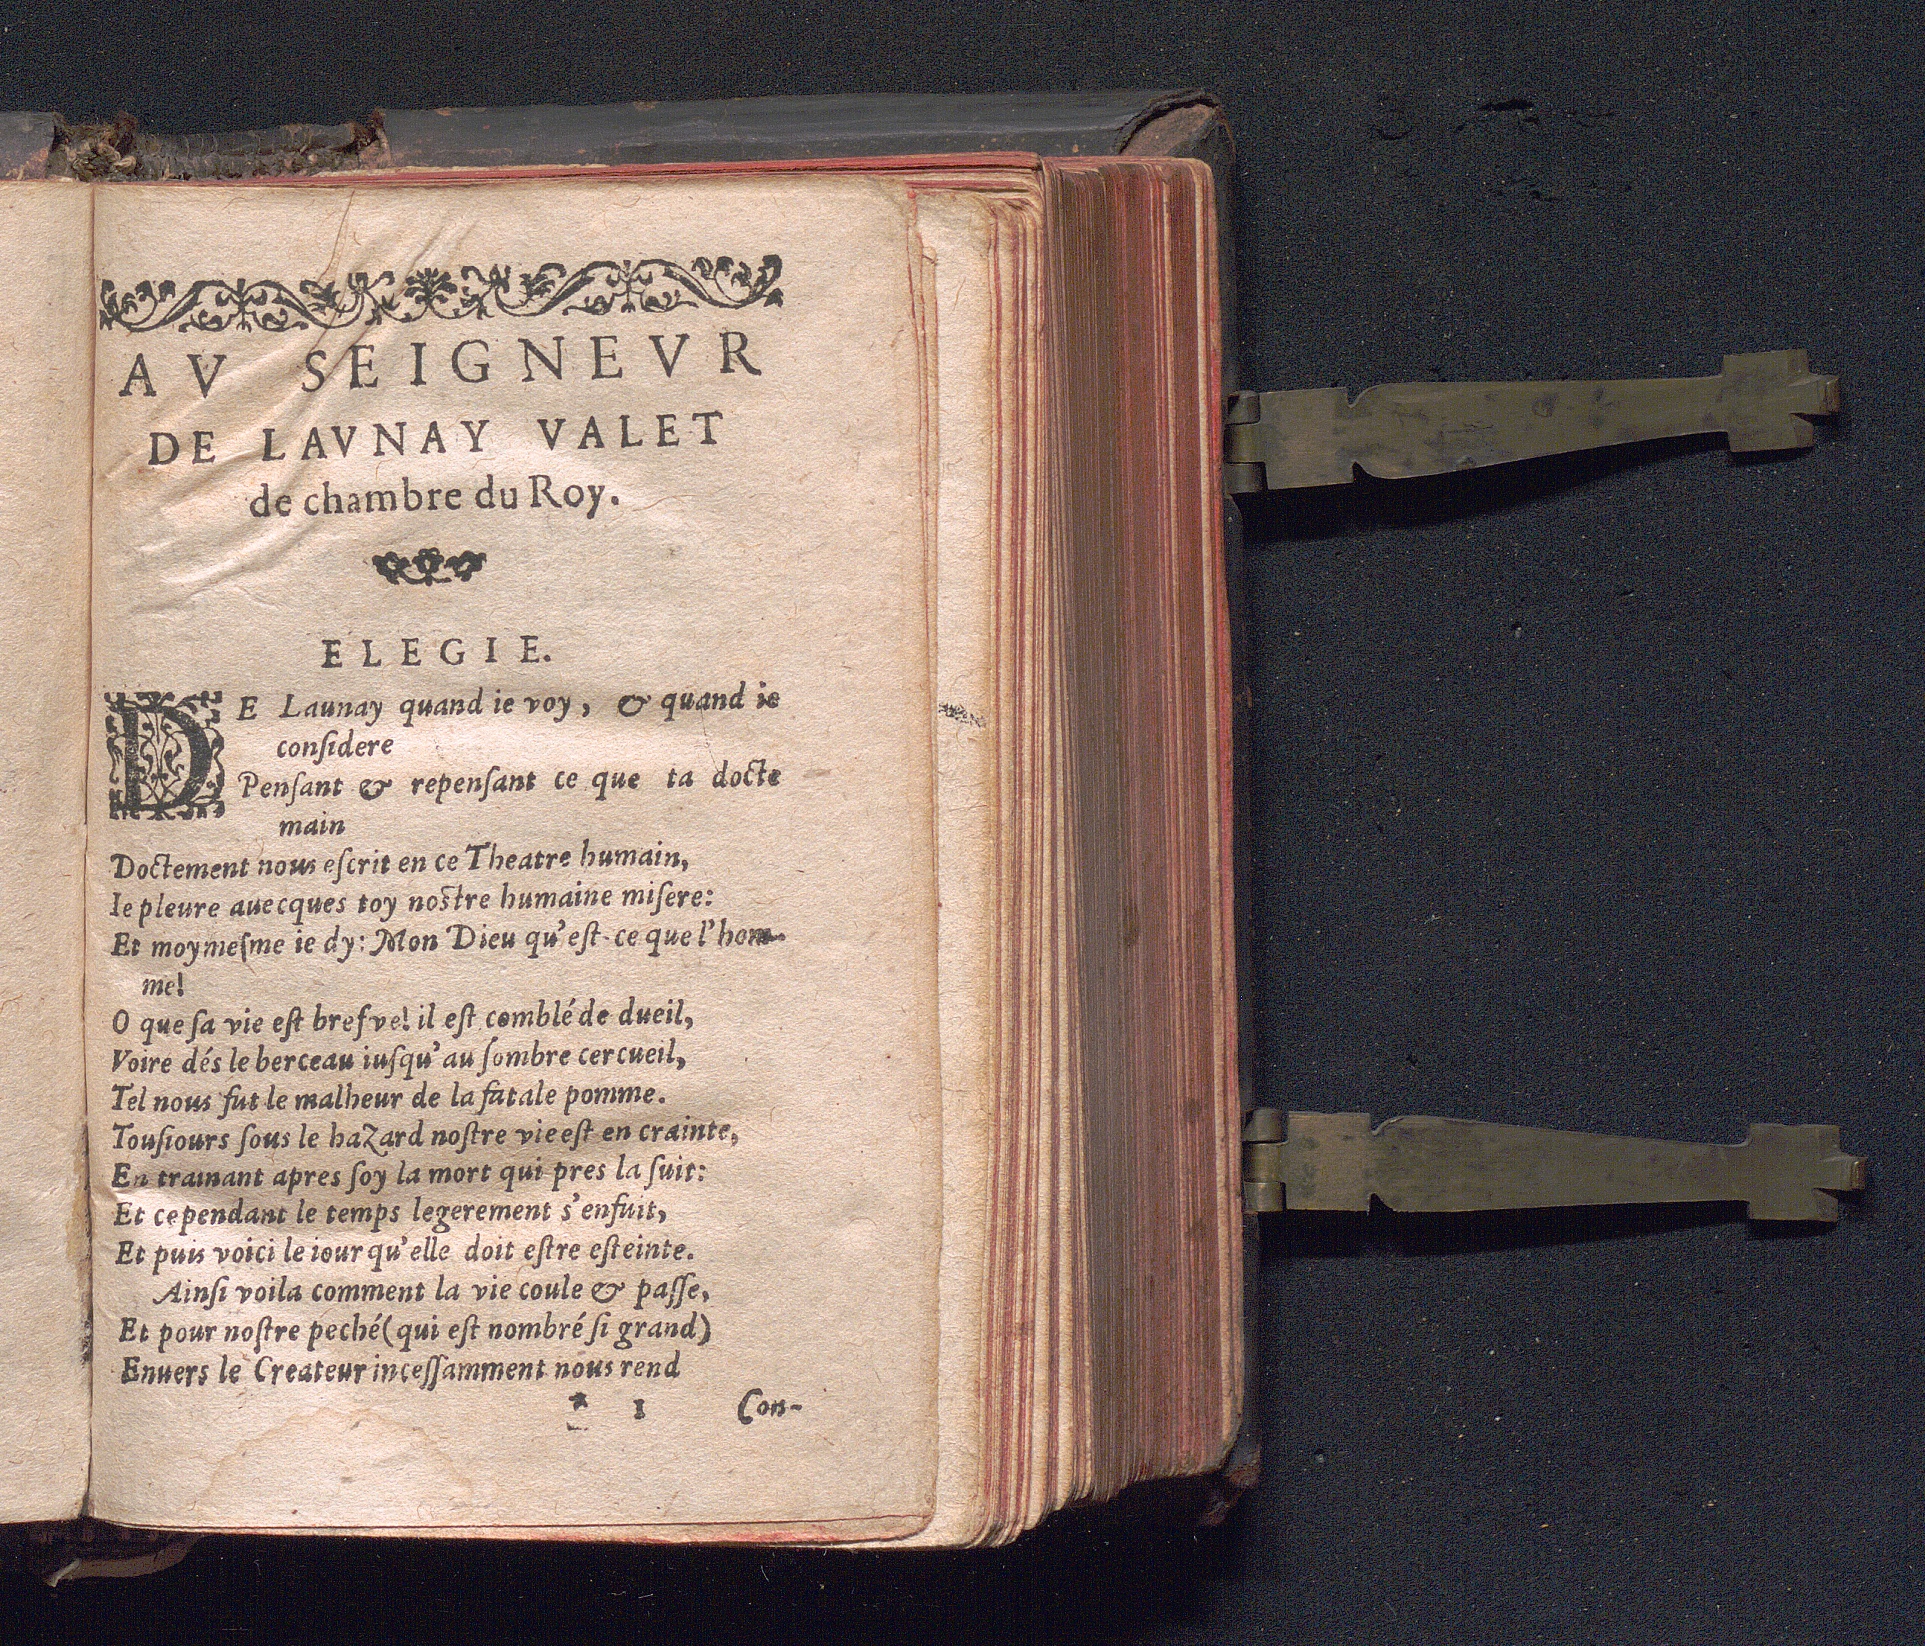 AV SEIGNEVR
DE LAVNAY VALET
de chambre du Roy.
ELEGIE.
DE Launay quand ie voy, & quand ie
conſidere
Penſant & repenſant ce que ta docte
main
Doctement nous eſcrit en ce Theatre humain,
Ie pleure auecques toy noſtre humaine miſere:
Et moymeſme ie dy: Mon Dieu qu'eſt-ce que l'hom-
me!
O que ſa vie eſt brefve! il eſt comblé de dueil,
Voire dés le berceau iuſqu'au ſombre cercueil,
Tel nous fut le malheur de la fatale pomme.
Touſiours ſous le hazard noſtre vie eſt en crainte,
En trainant apres ſoy la mort qui pres la ſuit:
Et cependant le temps legerement s'enfuit,
Et puis voici le iour qu'elle doit eſtre eſteinte.
Ainſi voila comment la vie coule & paſſe,
Et pour noſtre peché (qui eſt nombré ſi grand)
Enuers le Createur inceſſamment nous rend
* 1 Con-